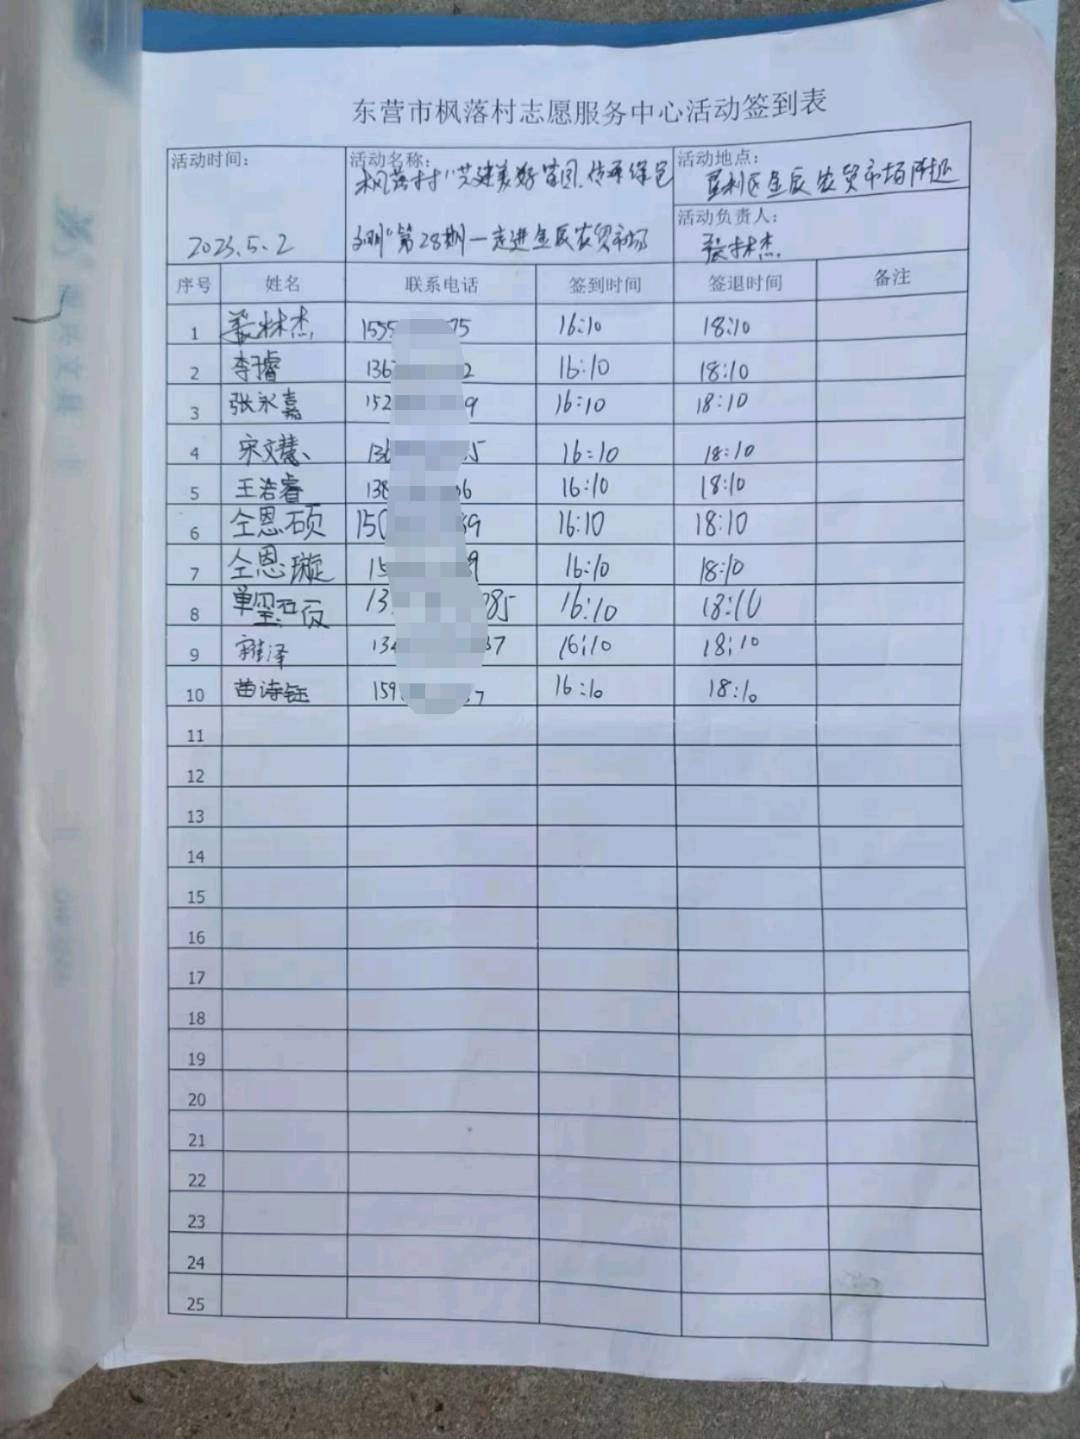 东营市枫落村志愿服务中心活动签到表
活动时间：
2023.5.2
活动名称：
枫落村"共建美好家园，传承绿色
文明"第28期—走进垦辰农贸市场
活动地点：
垦利区垦辰农贸市场附近
活动负责人：
张林杰
序号 姓名 联系电话 签到时间 签退时间 备注
1 林杰 155 75 16:10 18:10
2 李璿 136 2 16:10 18:10
3 张永嘉 152 9 16:10 18:10
4 宋文慧 136 5 16:10 18:10
5 王浩睿 138 6 16:10 18:10
6 仝恩硕 150 39 16:10 18:10
7 仝恩璇 15 9 16:10 18:10
8 单 13 85 16:10 18:10
9 泽 134 37 16:10 18:10
10 苗诗钰 159 7 16:10 18:10
11
12
13
14
15
16
17
18
19
20
21
22
23
24
25